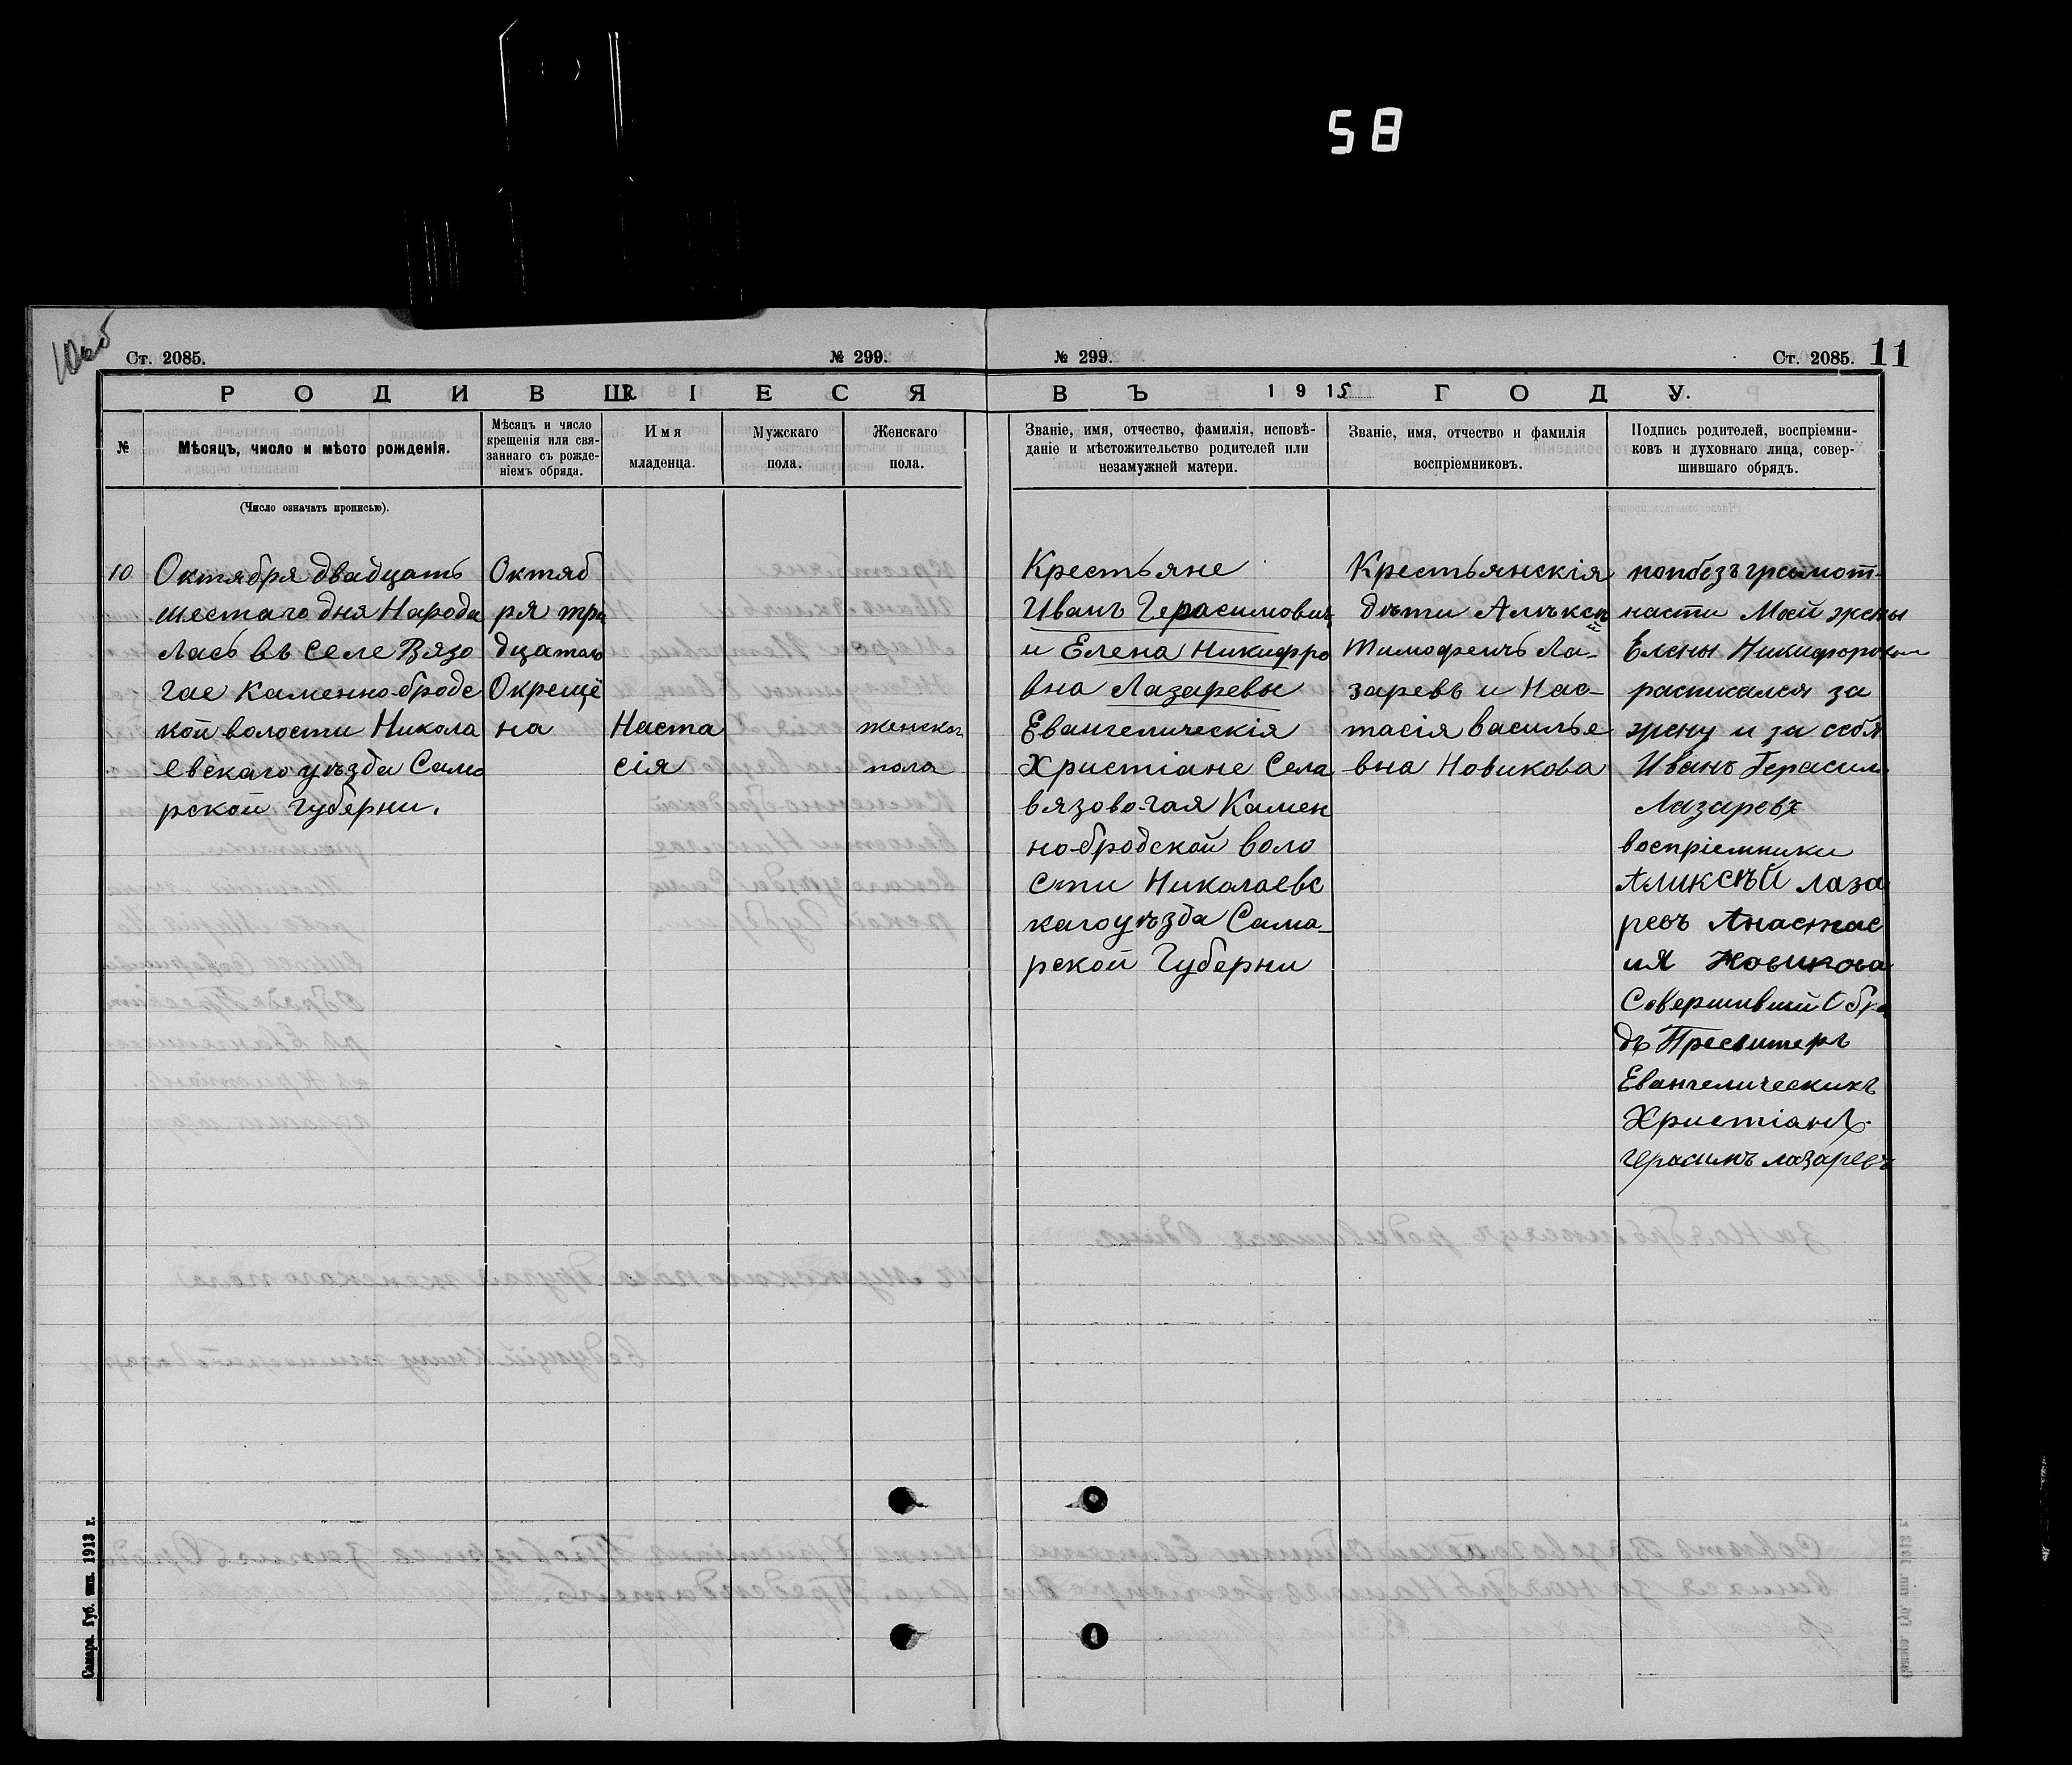 58
Ст. 2085.
№ 299.
№ 299.
Ст. 2085.
11
РОДИВШІЕСЯ
ВЪ 1915 ГОДУ.
№
Мѣсяцъ, число и мѣсто рожденія.
Мѣсяцъ и число
крещенія или свя-
заннаго съ рожде-
ніемъ обряда.
Имя
младенца.
Мужскаго
пола.
Женскаго
пола.
Званіе, имя, отчество, фамилія, исповѣ-
даніе и мѣстожительство родителей или
незамужней матери.
Званіе, имя, отчество и фамилія
воспріемниковъ.
Подпись родителей, воспріемни-
ковъ и духовнаго лица, совер-
шившаго обрядъ.
(Число означать прописью).
10
Октября двадцать
шестаго дня Народи
лась въ селе Вязо
гае Каменно-бродс
кой волости Никола
евскаго уѣзда Сама
рской губерни.
Октяб
ря три
дцатаго
Окреще
на
Наста
сія
женскаго
пола
Крестьяне
Иванъ Герасимовичъ
и Елена Никифро
вна Лазаревы
Евангелическія
Христіане Села
вязово-гая Камен
но-бродской воло
сти Николаевс
каго уѣзда Сама-
рской Губерни
Крестьянскія
дѣти Алѣксѣй
Тимофеичъ Ла-
заревъ и Нас-
тасія василье
вна Новикова
попбезъграмот-
насти Моей жены
Елены Никифоровны
расписался за
жену и за себя
Иванъ Герасим.
Лазаревъ
воспріемники
Аликсѣй лаза
ревъ Анастас
ия Новикова
Совершивший Обря
дъ Пресвитеръ
Евангелическихъ
Христіанъ.
герасимъ лазаревъ
Самара. Губ. тип. 1913 г.